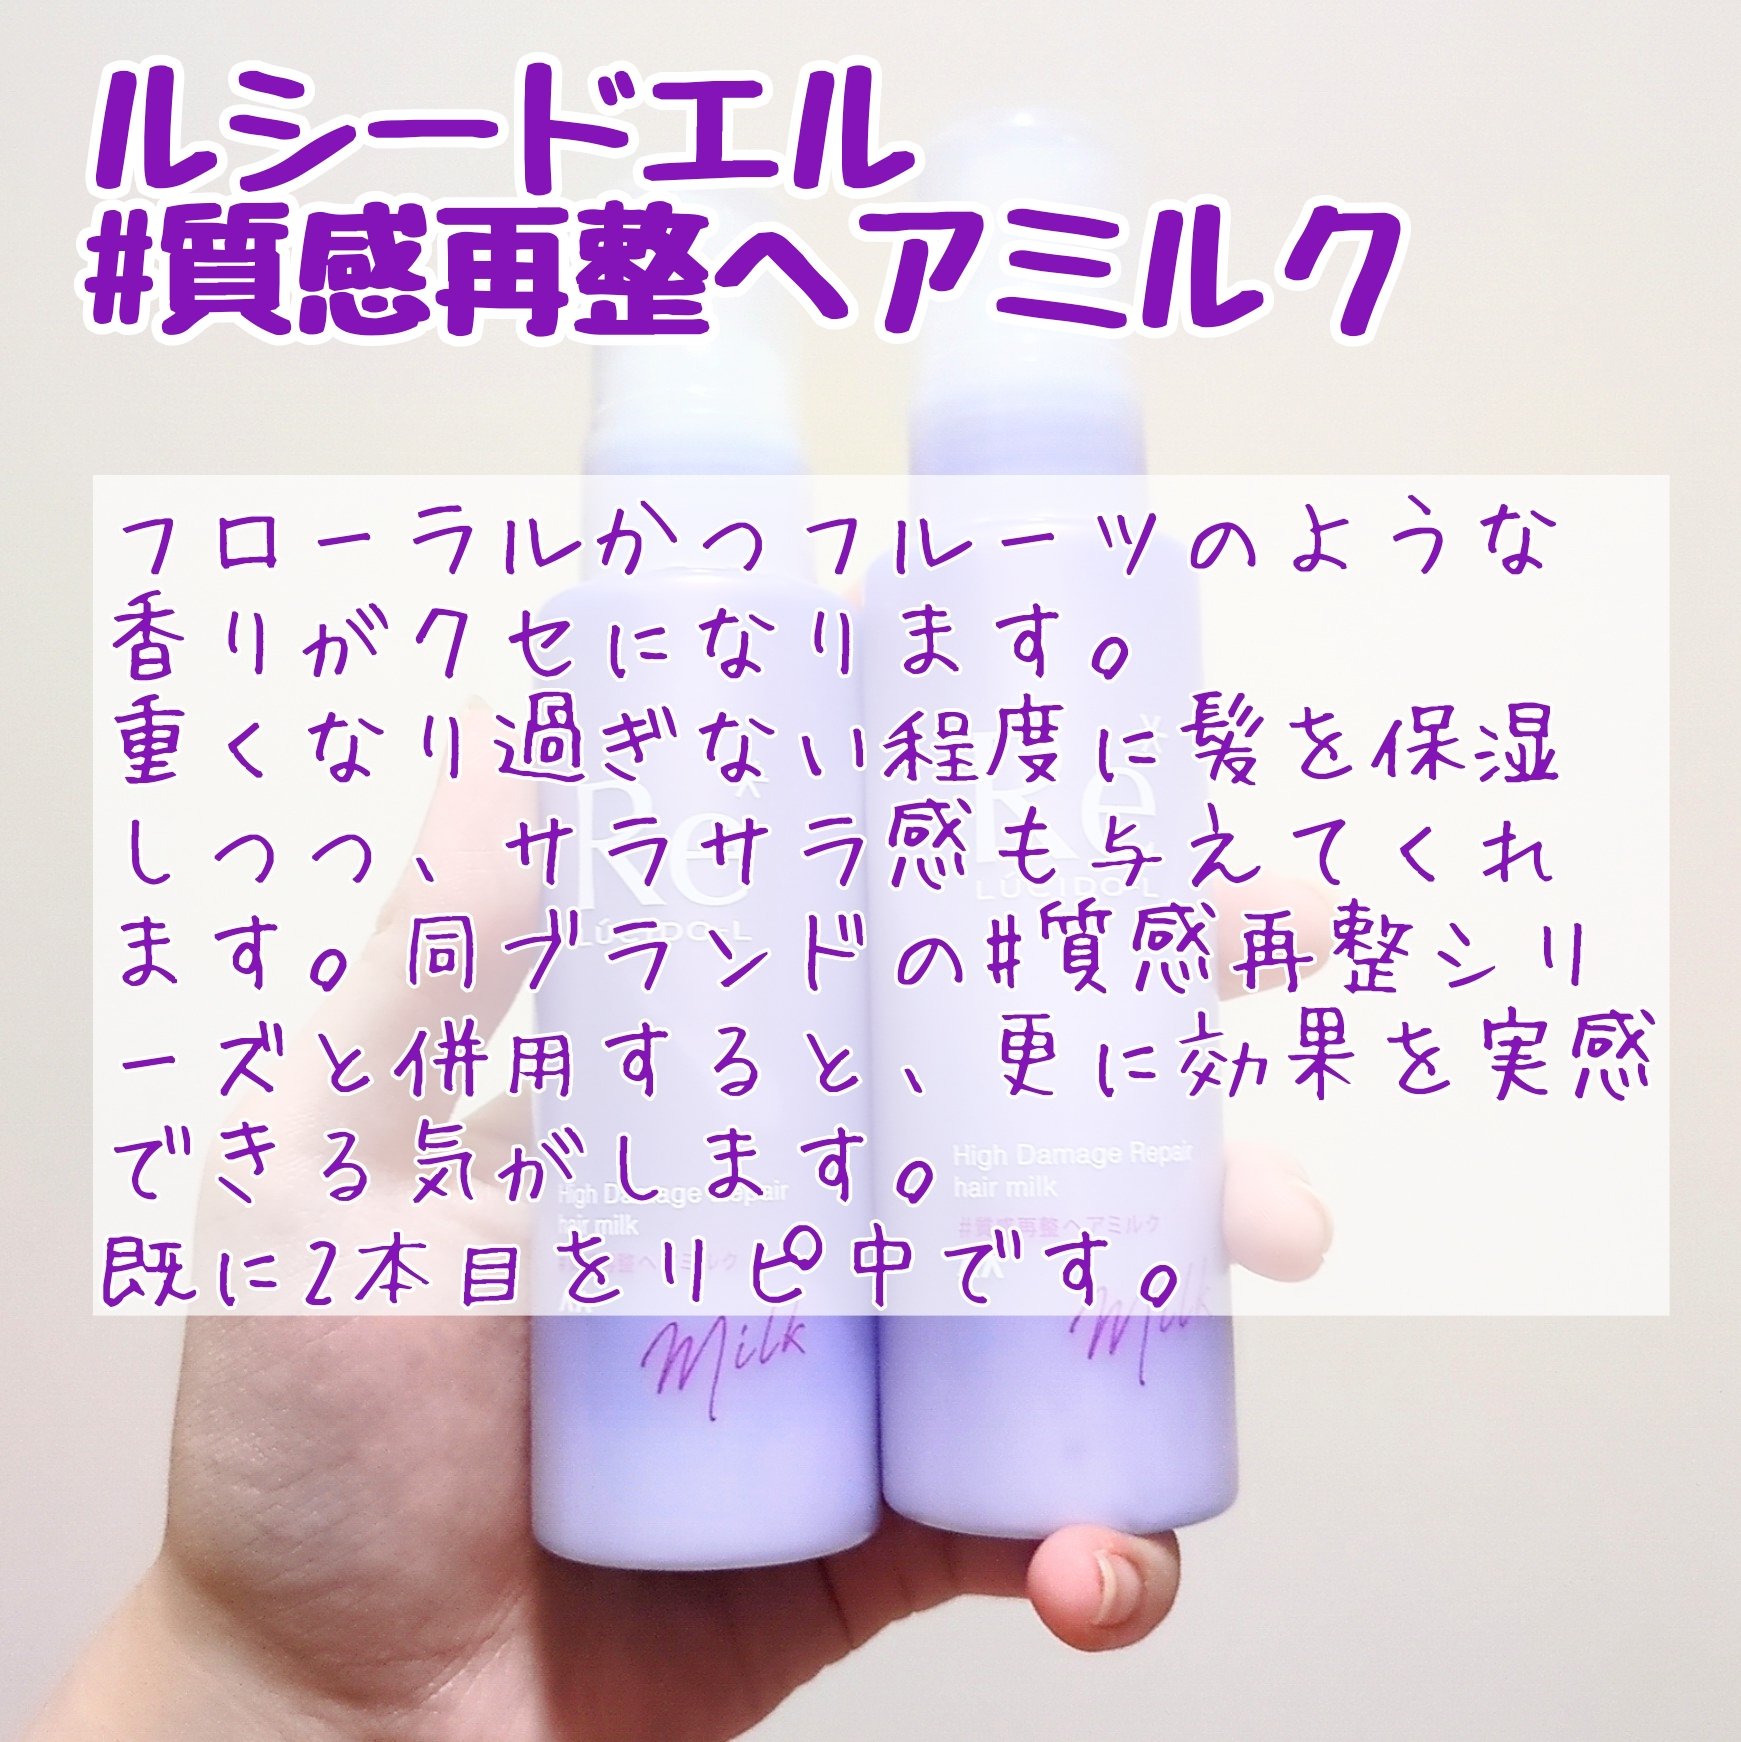 ルシードエル
#質感再整ヘアミルク
フローラルかつフルーツのような
香りがクセになります。
重くなり過ぎない程度に髪を保湿
しつつ、サラサラ感も与えてくれ
ます。同ブランドの#質感再整シリ
ーズと併用すると、更に効果を実感
できる気がします。
既に2本目をリピ中です。
Re
LÚCIDO-L
High Damage Repair
hair milk
Milk
Re
LÚCIDO-L
High Damage Repair
hair milk
#質感再整ヘアミルク
Milk